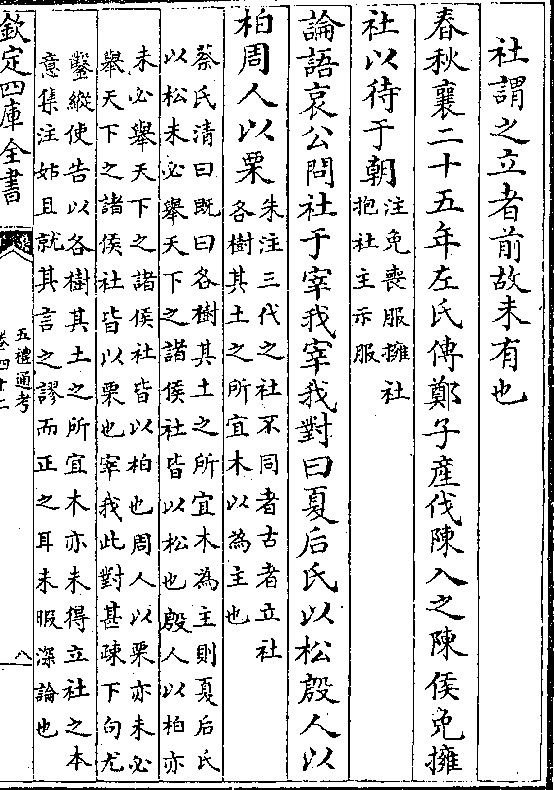 社謂之立者前故未有也
春秋襄二十五年左氏傳鄭子産伐陳入之陳侯免擁
社以待于朝注免喪服擁社
抱社主示服
論語哀公問社于宰我宰我對曰夏后氏以松殷人以
柏周人以栗朱注三代之社不同者古者立社
各樹其土之所宜木以為主也
蔡氏清曰既曰各樹其土之所宜木為主則夏后氏
以松未必舉天下之諸侯社皆以松也殷人以柏亦
未必舉天下之諸侯社皆以柏也周人以栗亦未必
舉天下之諸侯社皆以栗也宰我此對甚疎下句尤
鑿縱使告以各樹其土之所宜木亦未得立社之本
意集注姑且就其言之謬而正之耳未暇深論也
欽定四庫全書
五禮通考
卷四十二
八